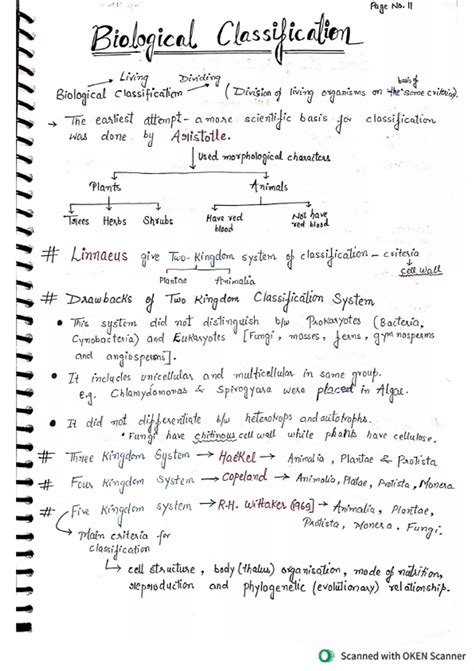 Page No. 11
Biological Classification
Living Dividing
Biological Classification (Division of living organisms on the basis of some criteria).
→ The earliest attempt - a more scientific basis for classification
was done by Aristotle.
Used morphological characters
Plants Animals
Trees Herbs Shrubs Have red blood Not have red blood
# Linnaeus give Two-Kingdom system of classification - criteria
Plantae Animalia cell wall
# Drawbacks of Two Kingdom Classification System
• This system did not distinguish b/w Prokaryotes (Bacteria,
Cynobacteria) and Eukaryotes [Fungi, mosses, ferns, gymnosperms
and angiosperms].
• It includes unicellular and multicellular in same group.
e.g. Chlamydomonas & Spirogyara were placed in Algae.
• It did not differentiate b/w heterotrops and autotrophs.
• Fungi have chitinous cell wall while plants have cellulose.
# Three Kingdom System → Haekel → Animalia, Plantae & Protista
# Four Kingdom System → Copeland → Animalia, Platae, Protista, Monera.
# Five Kingdom system → R.H. Wittaker [1969] → Animalia, Plantae,
Protista, Monera, Fungi.
Main criteria for
classification
↳ cell structure, body (thalus) organisation, mode of nutrition,
reproduction and phylogenetic (evolutionary) relationship.
Scanned with OKEN Scanner